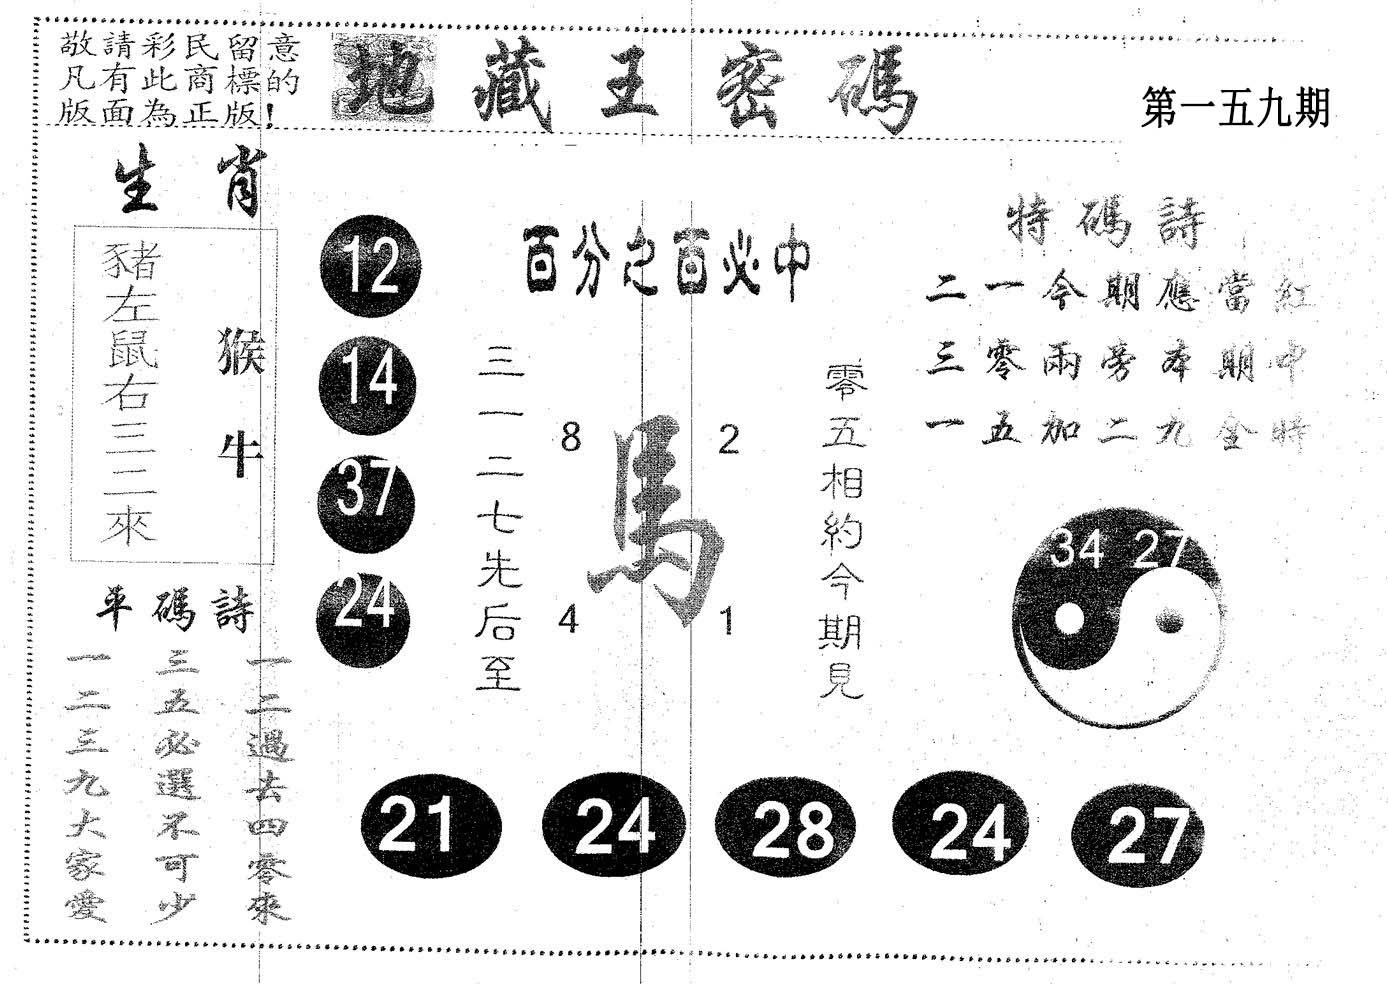 敬請彩民留意
凡有此商標的
版面為正版!
地藏王密碼
第一五九期
生肖
豬左鼠右三二來
猴牛
12
14
37
24
百分之百必中
三一二七先后至
8
2
馬
4
1
零五相約今期見
特碼詩
二一今期應當紅
三零兩旁本期中
一五加二九金特
34 27
平碼詩
一二過去四零來
三五必選不可少
一二三九大家愛
21
24
28
24
27